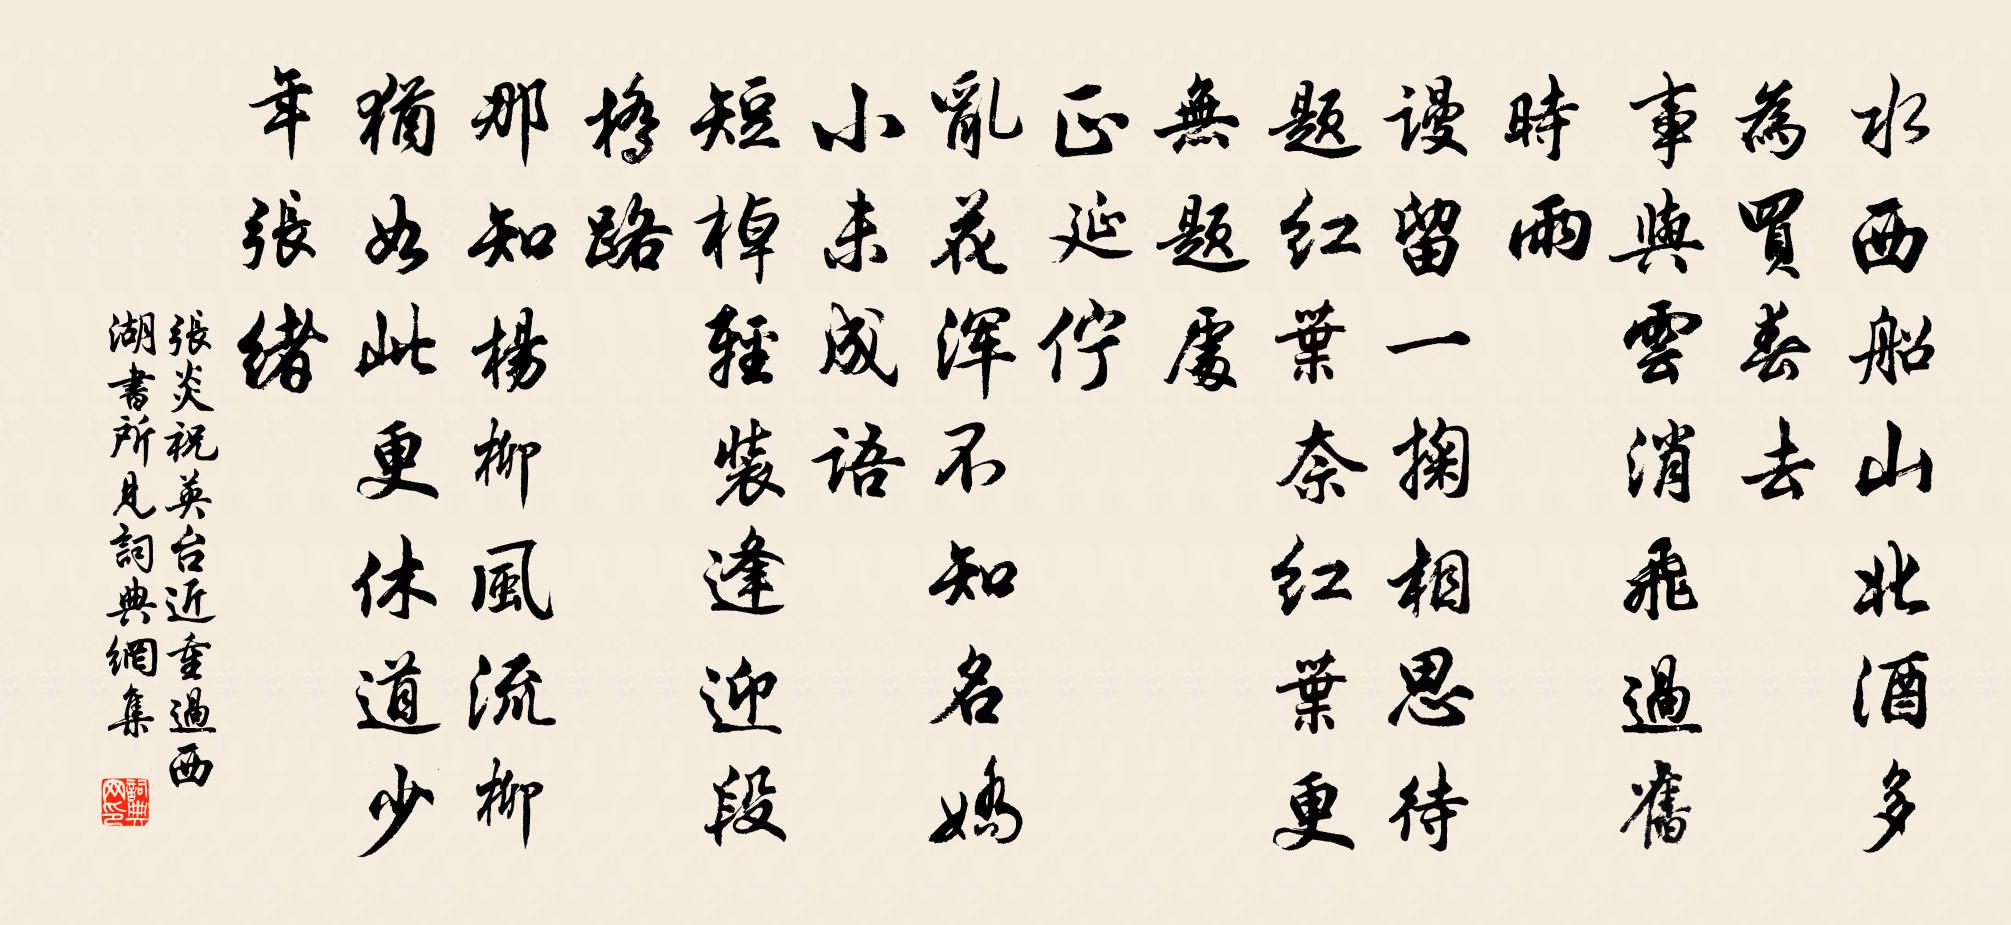 水西船山北酒多
為買春去
事與雲消飛過舊
時雨
謾留一掬相思待
題紅葉奈紅葉更
無題處
正延佇
亂花渾不知名嬌
小未成語
短棹輕裝逢迎段
橋路
那知楊柳風流柳
猶如此更休道少
年張緒
張炎祝英台近重過西
湖書所見詞典網集
詞典
网印